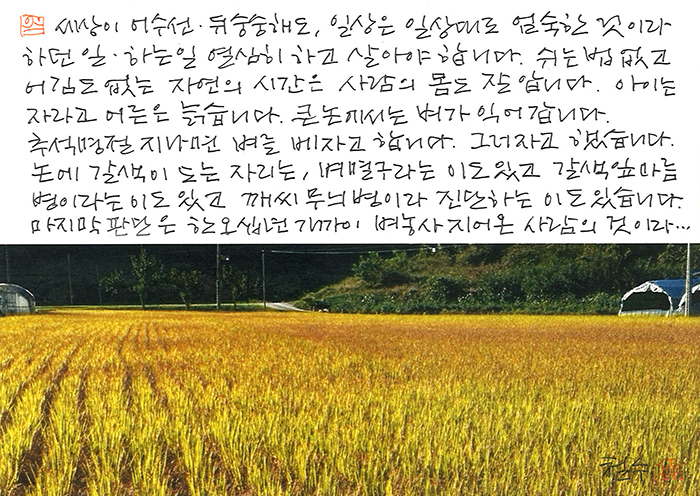 세상이 어수선·뒤숭숭해도, 일상은 일상대로 엄숙한 것이라
하던 일·하는일 열심히 하고 살아야 합니다. 쉬는법 없고
어김도 없는 자연의 시간은 사람의 몸도 잘 압니다. 아이는
자라고 어른은 늙습니다. 큰논에서는 벼가 익어갑니다.
추석명절 지나면 벼를 베자고 합니다. 그러자고 했습니다.
논에 갈색이 도는 자리는, 벼멸구라는 이도있고 갈색잎마름
병이라는이도 있고 깨씨무늬병이라 진단하는 이도 있습니다.
마지막판단은 한오십년 가까이 벼농사지어온 사람의 것이라...